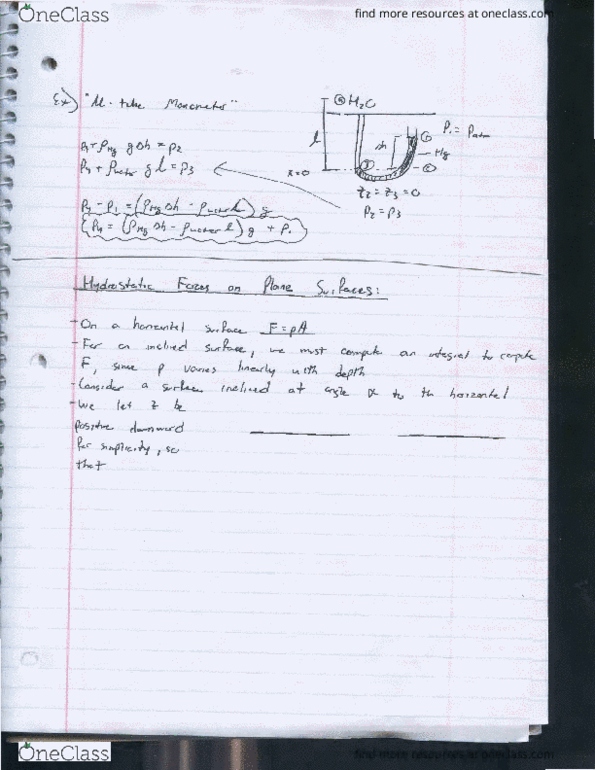 OneClass
find more resources at oneclass.com
Ex) "U-tube Manometer"
④ H₂O
P₁ = Patm
l
Δh
①
Hg
P₁ + ρHg g Δh = P₂
P₄ + ρwater g l = P₃
z=0
③
②
z₂ = z₃ = 0
P₂ = P₃
P₄ - P₁ = (ρHg Δh - ρwater l) g
P₄ = (ρHg Δh - ρwater l) g + P₁
Hydrostatic Forces on Plane Surfaces:
- On a horizontal surface F = pA
- For an inclined surface, we must compute an integral to compute
F, since p varies linearly with depth
- Consider a surface inclined at angle α to the horizontal
- We let z be
positive downward
for simplicity, so
that
OneClass
find more resources at oneclass.com